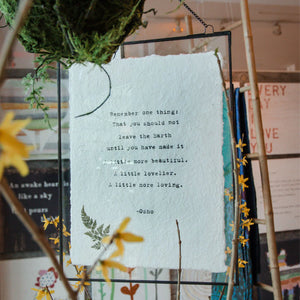 Remember one thing:
That you should not
leave the Earth
until you have made it
a little more beautiful.
A little lovelier.
A little more loving.
-Osho
EVERY
DAY
I LOVE
YOU
An awake hear
like a sky
pours